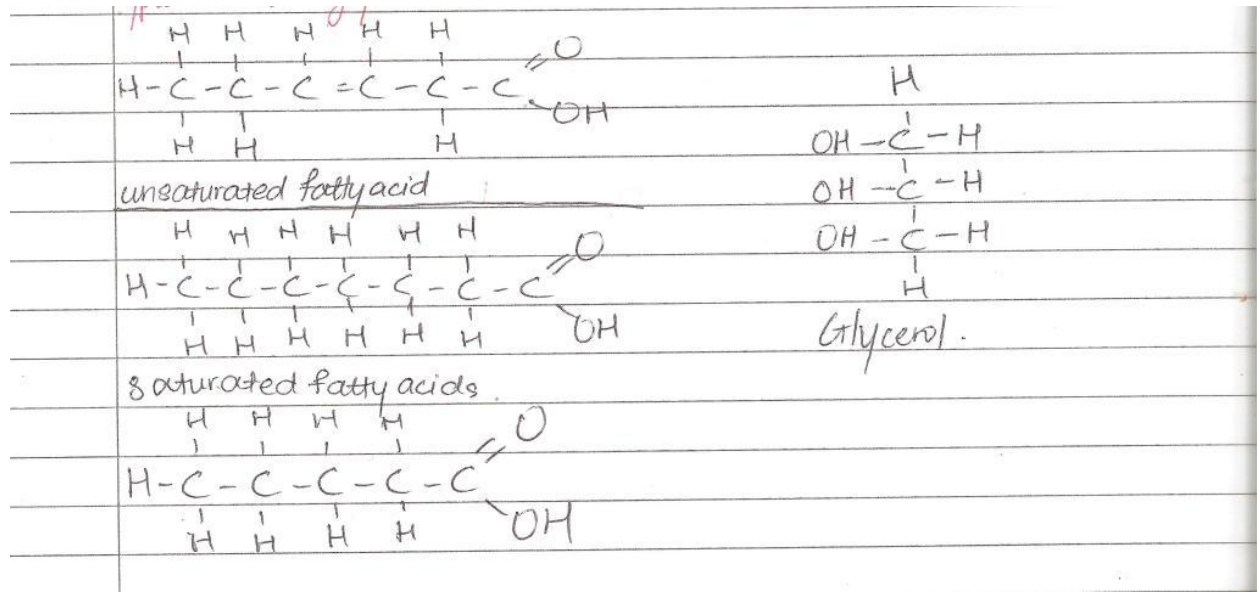 H H H H H
H-C-C-C=C-C-C
O
OH
H H H
unsaturated fatty acid
H H H H H H
H-C-C-C-C-C-C-C
O
OH
H H H H H H
saturated fatty acids.
H H H H
H-C-C-C-C-C
O
OH
H H H H
H
OH-C-H
OH-C-H
OH-C-H
H
Glycerol.